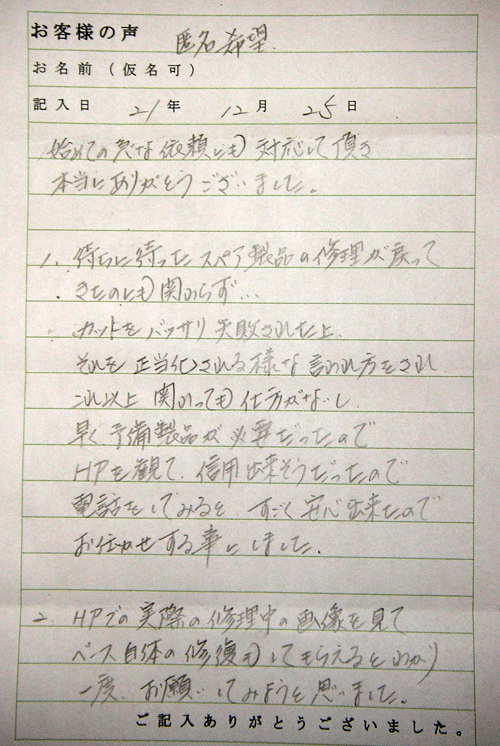 お客様の声 匿名希望.
お名前(仮名可)
記入日 21年 12月 25日
始めての急な依頼にも対応して頂き
本当にありがとうございました。
1. 待ちに待ったスペア製品の修理が戻って
きたのにも関わらず…
カットをバッサリ失敗された上、
それを正当化される様な言われ方をされ
これ以上関わっても仕方がないし
早く予備製品が必要だったので
HPを観て、信用出来そうだったので
電話をしてみると すごく安心出来たので
お任かせする事にしました。
2. HPでの実際の修理中の画像を見て
ベース自体の修復もしてもらえるとわかり
一度、お願いしてみようと思いました。
ご記入ありがとうございました。